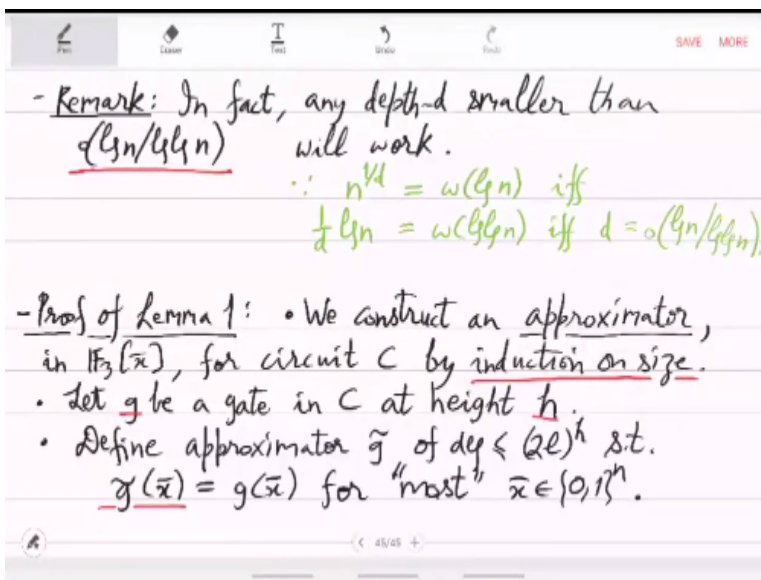 Pen Eraser Text Undo Redo SAVE MORE
- Remark: In fact, any depth-d smaller than
o(lgn/lglgn) will work.
∵ n^{1/d} = ω(lgn) iff
1/d lgn = ω(lglgn) iff d = o(lgn/lglgn).
- Proof of Lemma 1: • We construct an approximator,
in F₃[x̄], for circuit C by induction on size.
• Let g be a gate in C at height h.
• Define approximator g̃ of deg ≤ (2l)^h s.t.
g̃(x̄) = g(x̄) for "most" x̄ ∈ {0,1}^n.
< 45/45 +